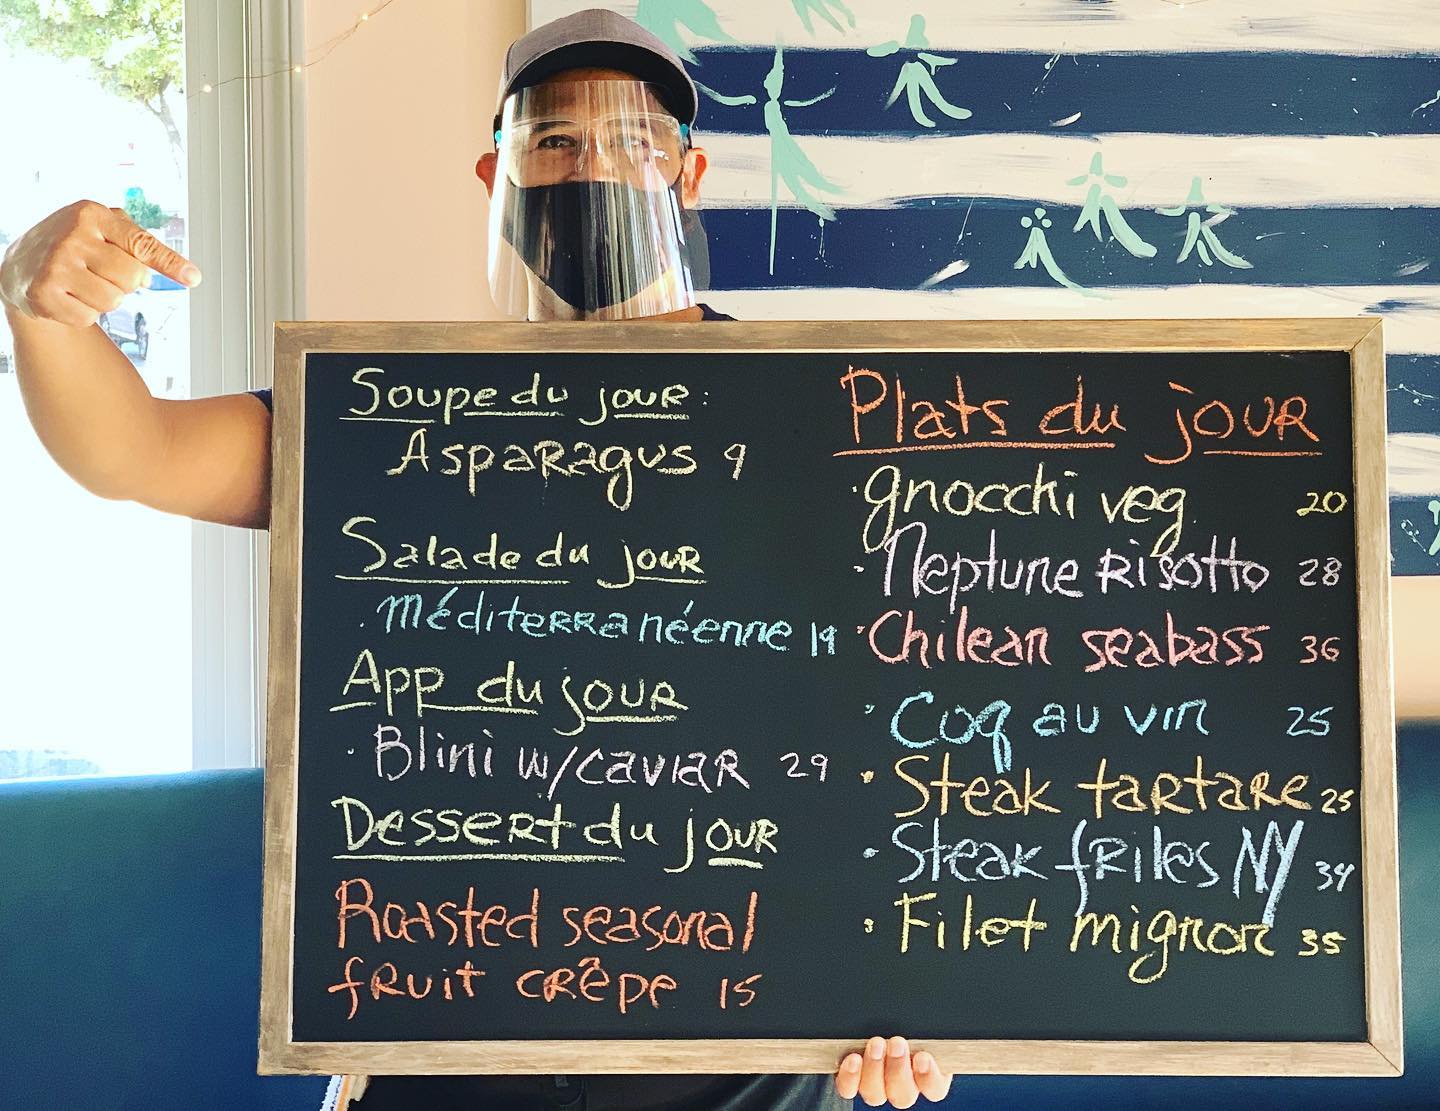 Soupe du jour:
Asparagus 9
Salade du jour
· Méditerranéenne 19
App du jour
· Blini w/caviar 29
Dessert du jour
Roasted seasonal
fruit crêpe 15
Plats du jour
· gnocchi veg. 20
· Neptune Risotto 28
· Chilean seabass 36
· Coq au vin 25
· Steak tartare 25
· Steak frites NY 34
· Filet mignon 35